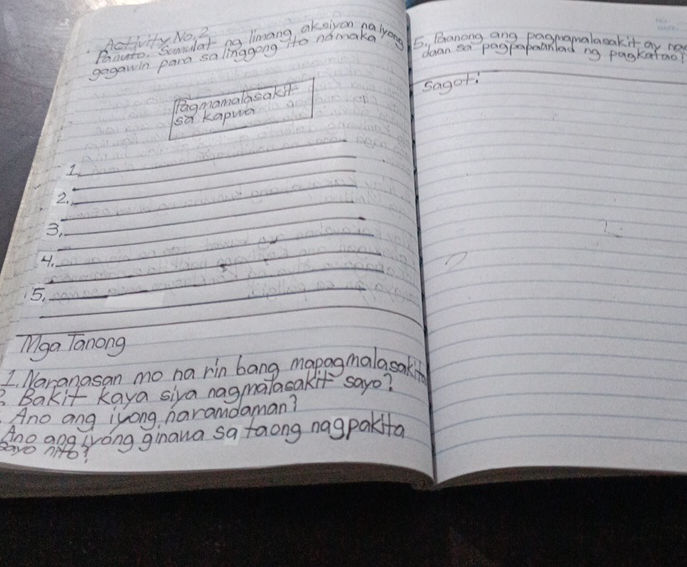 Activity No. 2
Panuto: Sumulat ng limang aksiyon na iyong
gagawin para sa linggong ito na maka
Pagmamalasakit
sa kapwa
1.
2.
3.
4.
5.
Mga Tanong
1. Naranasan mo na rin bang mapagmalasakitan
2. Bakit kaya siya nagmalasakit sayo?
Ano ang iyong naramdaman?
Ano ang iyong ginawa sa taong nagpakita
sayo nito?
5. Paanong ang pagmamalasakit ay
daan sa pagpapaunlad ng pagkatao?
Sagot: